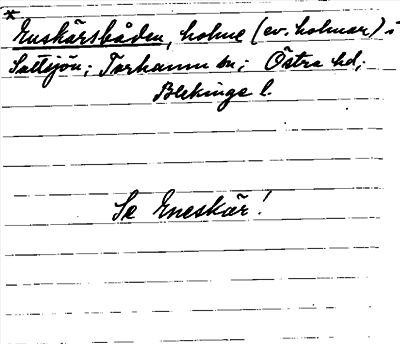 *
Enskärsbåden, holme (ev. holmar) i
Saltsjön; Torhamn sn; Östra hd;
Blekinge l.
Se Eneskär!